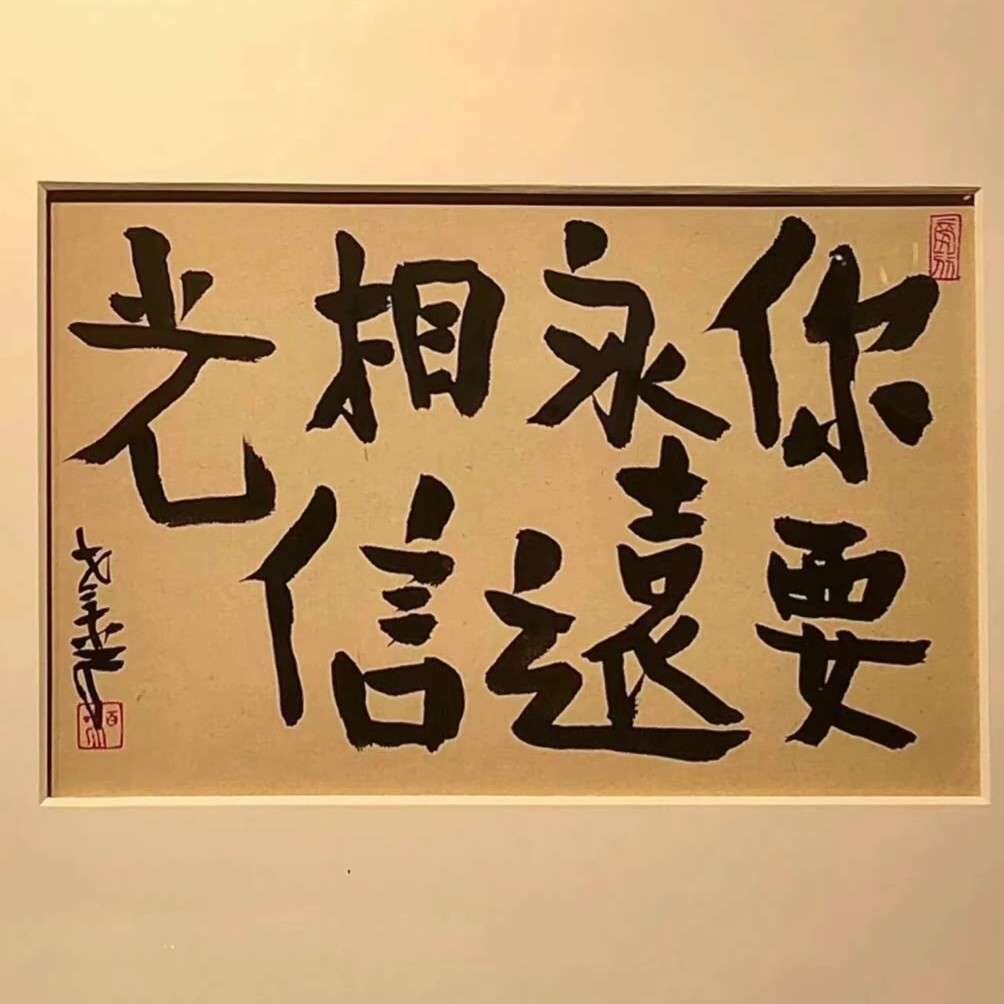 你要
永遠
相信
光